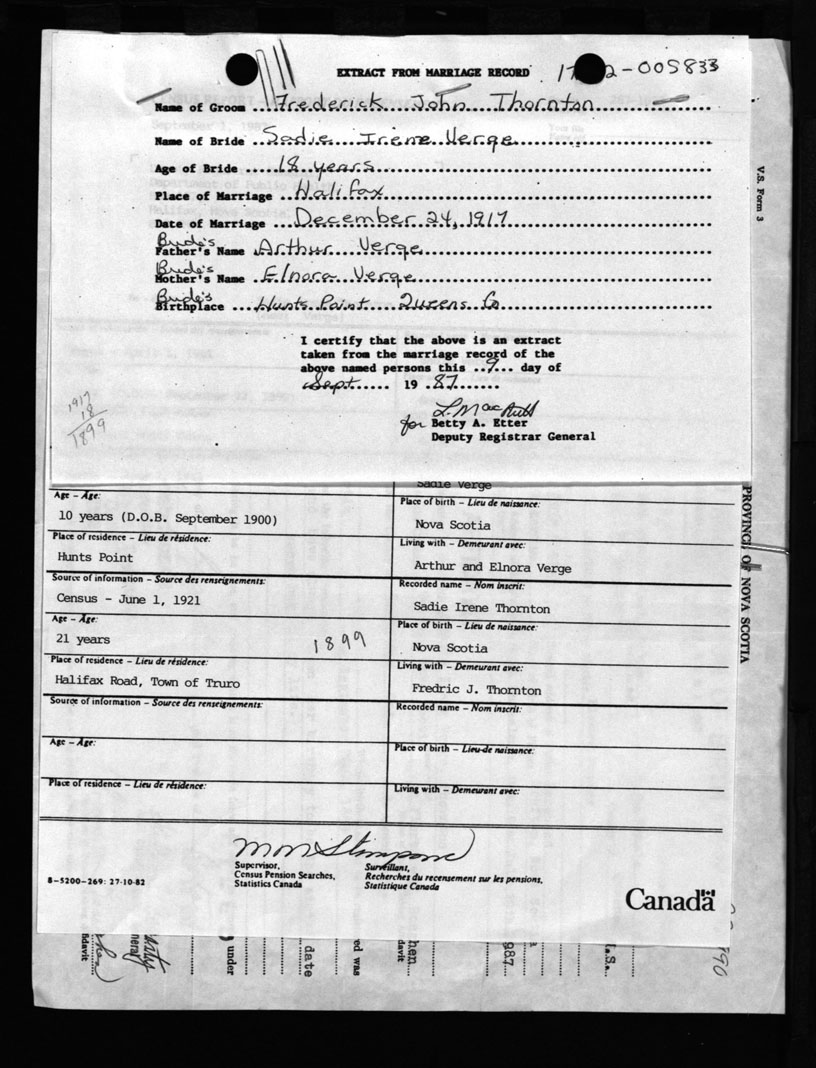 EXTRACT FROM MARRIAGE RECORD
2-005833
Name of Groom ... Frederick John Thornton
Name of Bride ... Sadie Irene Verge
Age of Bride ... 18 years
Place of Marriage .. Halifax
Date of Marriage ... December 24, 1917
Bride's
Father's Name . Arthur Verge
Bride's
Mother's Name .. Elnora Verge
Bride's
Birthplace ... Hunts Point Queens Co
I certify that the above is an extract
taken from the marriage record of the
above named persons this ..9... day of
Sept...... 19 .87......
for Betty A. Etter
Deputy Registrar General
1917
18
1899
V.S. Form 3
PROVINCE OF NOVA SCOTIA
Sadie Verge
Age – Âge:
10 years (D.O.B. September 1900)
Place of birth – Lieu de naissance:
Nova Scotia
Place of residence – Lieu de résidence:
Hunts Point
Living with – Demeurant avec:
Arthur and Elnora Verge
Source of information – Source des renseignements:
Census - June 1, 1921
Recorded name – Nom inscrit:
Sadie Irene Thornton
Age – Âge:
21 years
1899
Place of birth – Lieu de naissance:
Nova Scotia
Place of residence – Lieu de résidence:
Halifax Road, Town of Truro
Living with – Demeurant avec:
Fredric J. Thornton
Source of information – Source des renseignements:
Recorded name – Nom inscrit:
Age – Âge:
Place of birth – Lieu de naissance:
Place of residence – Lieu de résidence:
Living with – Demeurant avec:
Supervisor,
Census Pension Searches,
Statistics Canada
Surveillant,
Recherches du recensement sur les pensions,
Statistique Canada
8-5200-269: 27-10-82
Canada
under
date
ed was
hen
davit
987
.S.